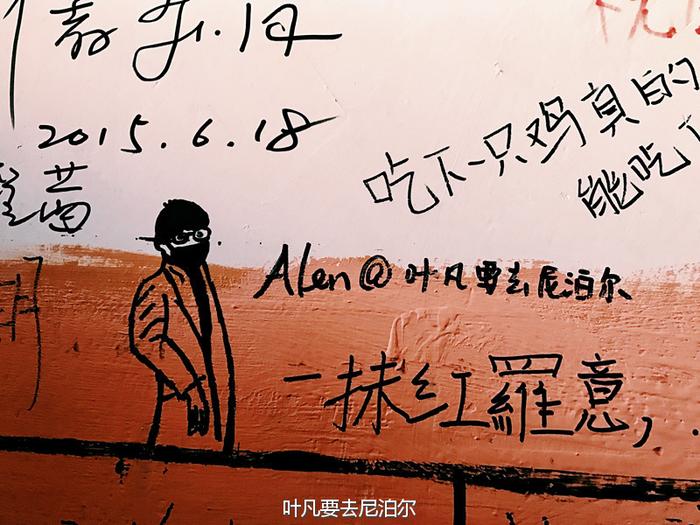 2015.6.18
吃下一只鸡真的
能吃下
Alen@叶凡要去尼泊尔
一抹红羅意,
叶凡要去尼泊尔